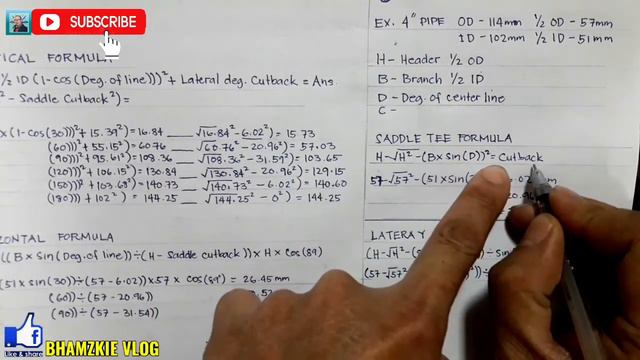 SUBSCRIBE
ICAL FORMULA
½ ID (1-cos(Deg. of line)))² + Lateral deg. Cutback = Ans.
² - Saddle Cutback²) =
x (1-cos(30)))² + 15.39² = 16.84 __ √16.84² - 6.02² = 15.73
(60)))² + 55.15² = 60.76 __ √60.76² - 20.96² = 57.03
(90)))² + 95.61² = 108.36 __ √108.36² - 31.59² = 103.65
(120)))² + 106.15² = 130.84 __ √130.84² - 20.96² = 129.15
(150)))² + 103.68² = 140.73 __ √140.73² - 6.02² = 140.60
(180))) + 102² = 144.25 __ √144.25² - 0² = 144.25
ZONTAL FORMULA
((B x Sin (Deg. of line)) ÷ (H - Saddle cutback)) x H x Cos (89)
(51 x sin(30)) ÷ (57 - 6.02)) x 57 x cos(59°) = 26.45 mm
(60)) ÷ (57 - 20.96))
(90)) ÷ (57 - 31.54))
EX. 4" PIPE OD - 114mm ½ OD - 57mm
ID - 102mm ½ ID - 51mm
H - Header ½ OD
B - Branch ½ ID
D - Deg. of center line
C -
SADDLE TEE FORMULA
H - √H² - (B x sin(D))² = Cutback
57 - √57² - (51 x Sin(
mm
20.96
LATERA
(H - √H² - (B x sin(D))²) ÷ sin
(57 - √57²
Like & share
BHAMZKIE VLOG